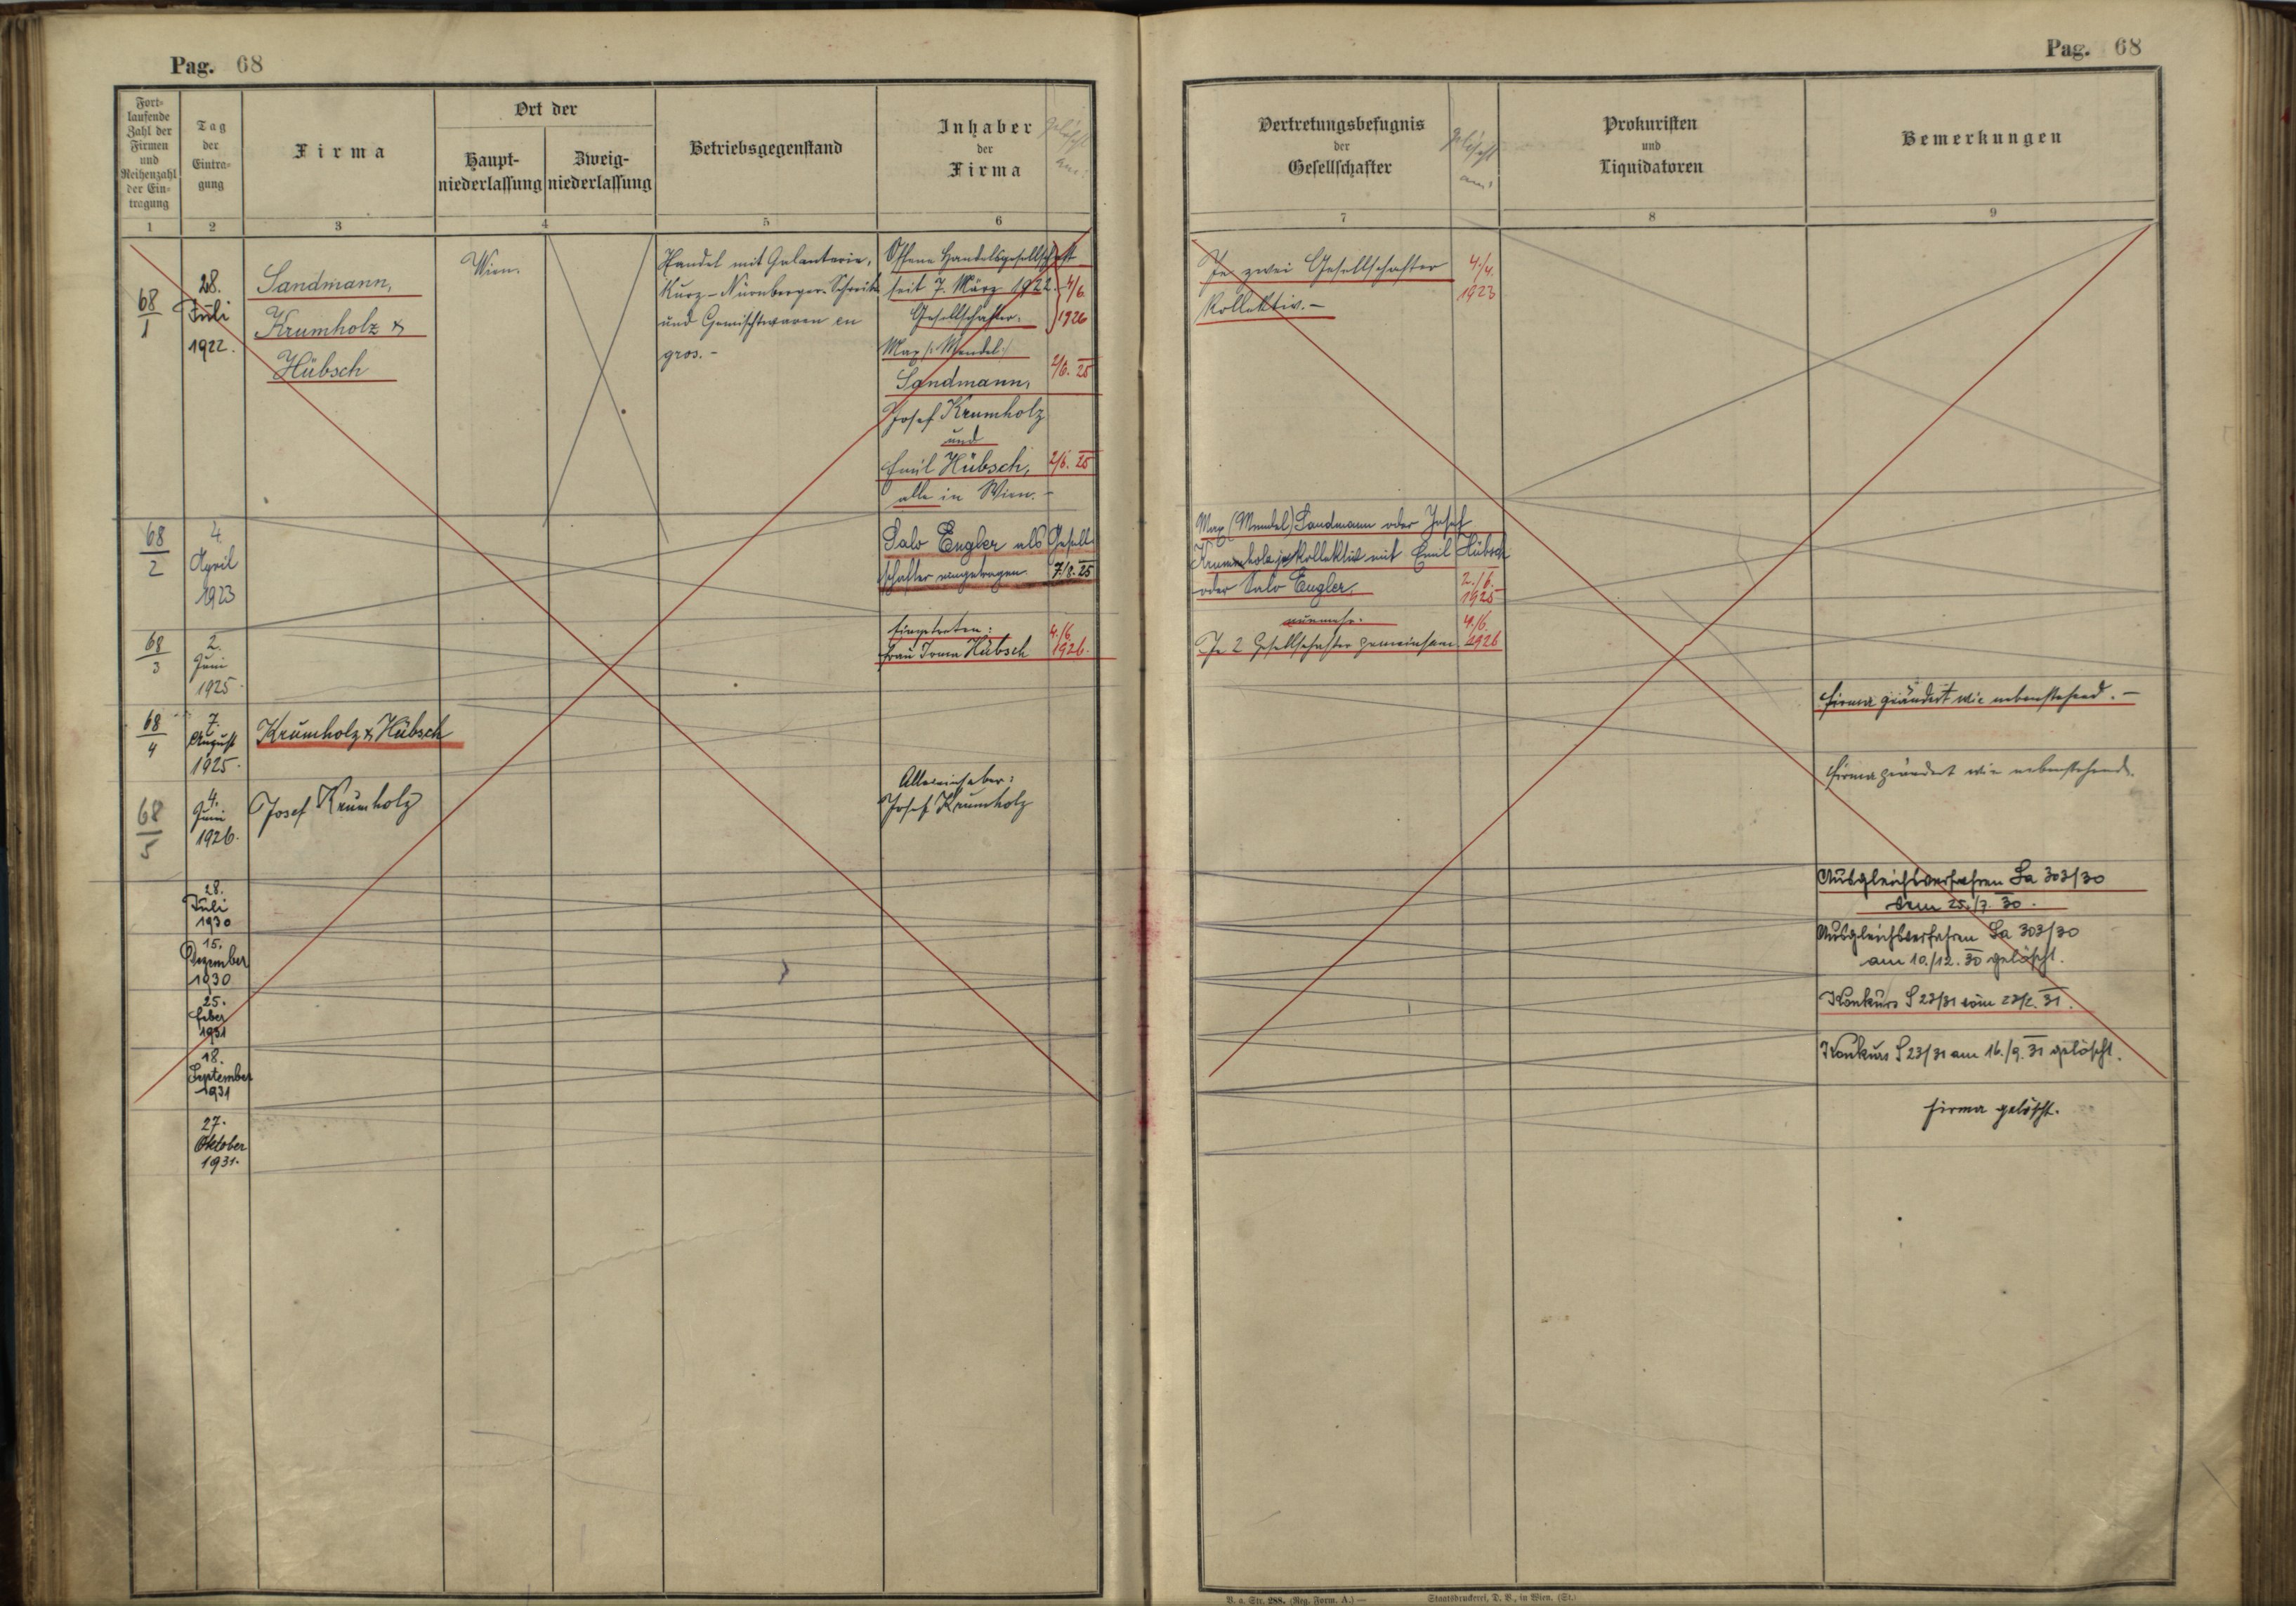 Pag. 68
Fort-
laufende
Zahl der
Firmen
und
Reihenzahl
der Ein-
tragung
Tag
der
Eintra-
gung
Firma
Ort der
Haupt-
niederlassung
Zweig-
niederlassung
Betriebsgegenstand
Inhaber
der
Firma
gelöscht
am:
1
2
3
4
5
6
68
1
28.
Juli
1922.
Sandmann,
Krumholz &
Hübsch
Wien.
Handel mit Galanterie,
Kurz- Nürnberger- Schreib-
und Gemischtwaren en
gros.-
Offene Handelsgesellschaft
seit 7. März 1922.
Gesellschafter:
4/6.
1926
Max /: Mendel :/
Sandmann,
2/6. 25
Josef Krumholz
und
Emil Hübsch,
2/6. 25
alle in Wien.-
68
2
4.
April
1923
Salo Engler als Gesell-
schafter eingetragen 7./8. 25
68
3
2.
Juni
1925.
Eingetreten:
Frau Irma Hübsch
4./6.
1926.
68
4
7.
August
1925.
Krumholz & Hübsch
68
5
4.
Juni
1926.
Josef Krumholz
Alleininhaber:
Josef Krumholz
28.
Juli
1930
15.
Dezember
1930
25.
Feber
1931
18.
September
1931
27.
Oktober
1931.
Pag. 68
Vertretungsbefugnis
der
Gesellschafter
gelöscht
am:
Prokuristen
und
Liquidatoren
Bemerkungen
7
8
9
Je zwei Gesellschafter
Kollektiv.-
4./4.
1923
Max (Mendel) Sandmann oder Josef
Krumholz je kollektiv mit Emil Hübsch
oder Salo Engler.
2./6.
1925
nunmehr:
Je 2 Gesellschafter gemeinsam
4./6.
1926
Firma geändert wie nebenstehend.-
Firma geändert wie nebenstehend.
Ausgleichsverfahren Sa 303/30
vom 25./7. 30.
Ausgleichsverfahren Sa 303/30
am 10./12. 30 gelöscht.
Konkurs S 23/31 vom 23/2. 31.
Konkurs S 23/31 am 16./9. 31 gelöscht.
Firma gelöscht.
B. a. Str. 288. (Reg. Form. A.) — Staatsdruckerei, D. B., in Wien. (St.)